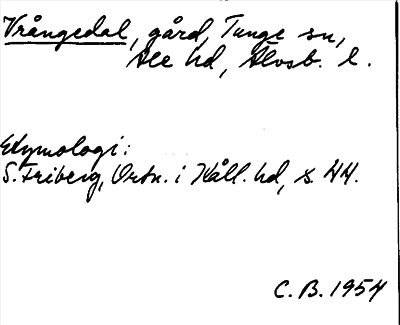 Vrångedal, gård, Tunge sn,
Ale hd, Älvsb. l.
Etymologi:
S. Friberg, Ortn. i Kåll. hd, s. 44.
C. B. 1954